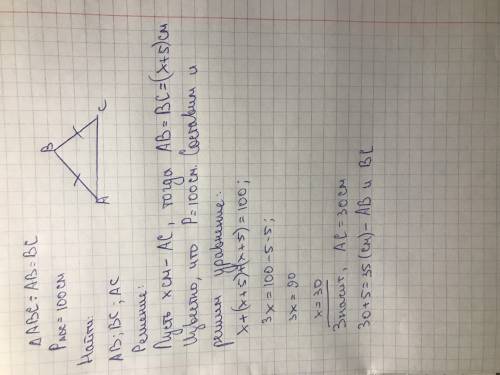 Δ ABC ÷ AB = BC
P ABC = 100 см
Найти:
AB; BC; AC
B
A
C
Решение:
Пусть x см – AC, тогда AB = BC = (x+5) см
Известно, что P = 100 см. Составим и
решим уравнение:
x + (x+5) + (x+5) = 100;
3x = 100 - 5 - 5;
3x = 90
x = 30
Значит, AC = 30 см
30 + 5 = 35 (см) – AB и BC